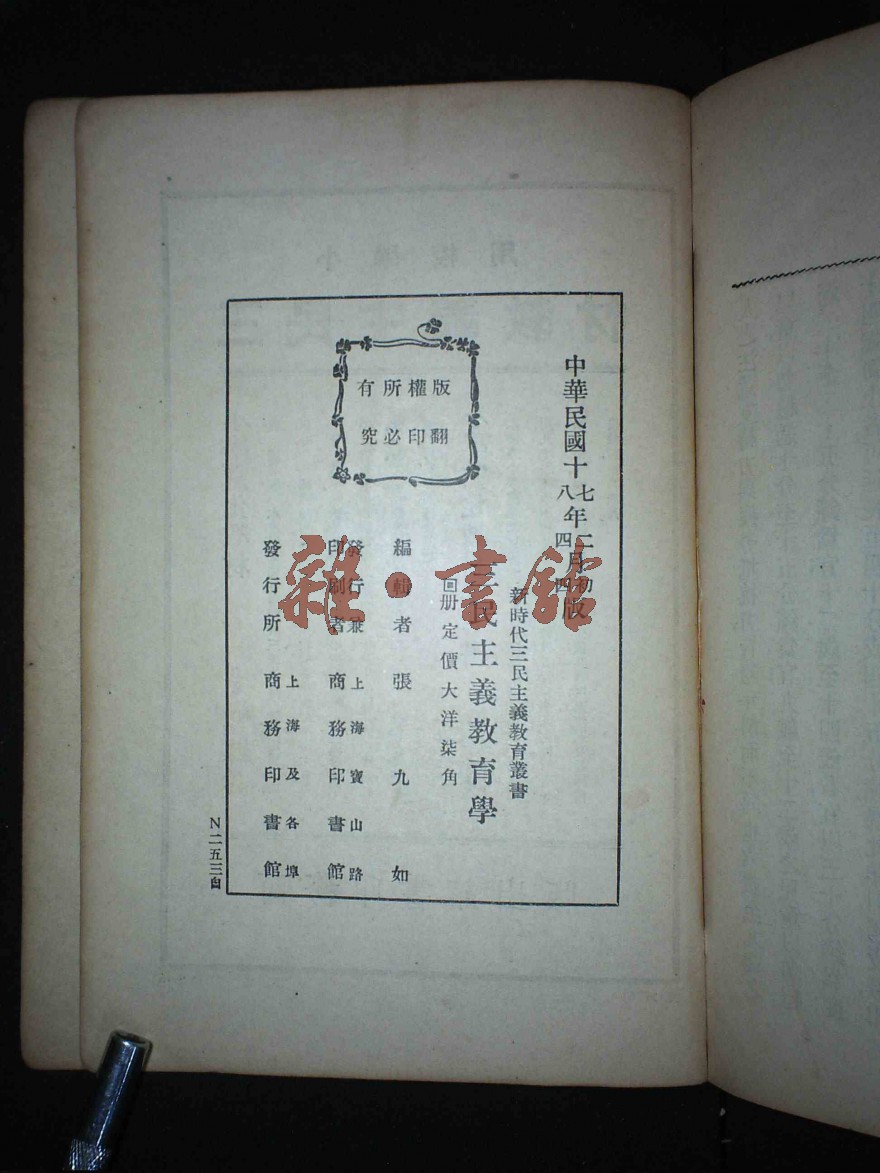 中華民國十七八年二四月初四版
新時代三民主義教育叢書
三民主義教育學
册定價大洋柒角
版權所有
翻印必究
編輯者張九如
發行兼印刷者
上海寶山路
商務印書館
發行所
上海及各埠
商務印書館
N二五三自
雜·書館